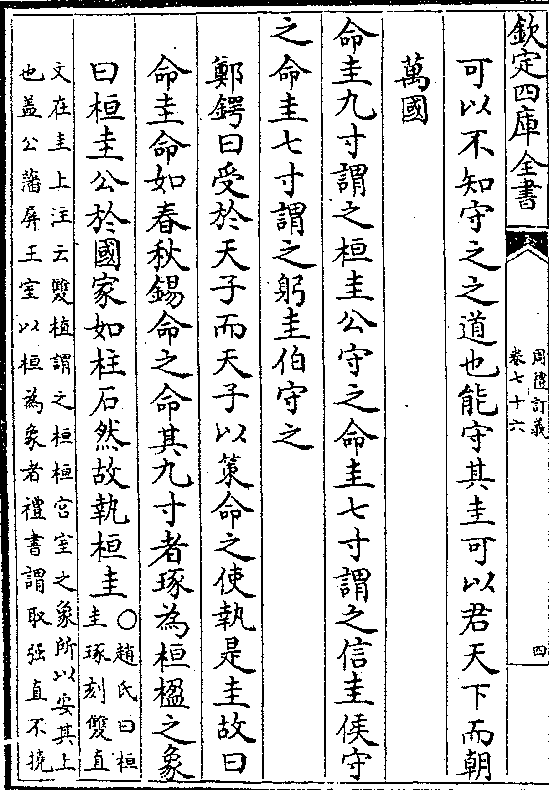 欽定四庫全書
周禮訂義
卷七十六
四
可以不知守之之道也能守其圭可以君天下而朝
萬國
命圭九寸謂之桓圭公守之命圭七寸謂之信圭侯守
之命圭七寸謂之躬圭伯守之
鄭鍔曰受於天子而天子以策命之使執是圭故曰
命圭命如春秋錫命之命其九寸者琢為桓楹之象
曰桓圭公於國家如柱石然故執桓圭
○趙氏曰桓
圭琢刻雙直
文在圭上注云雙植謂之桓桓宫室之象所以安其上
也盖公藩屏王室以桓為象者禮書謂取强直不撓